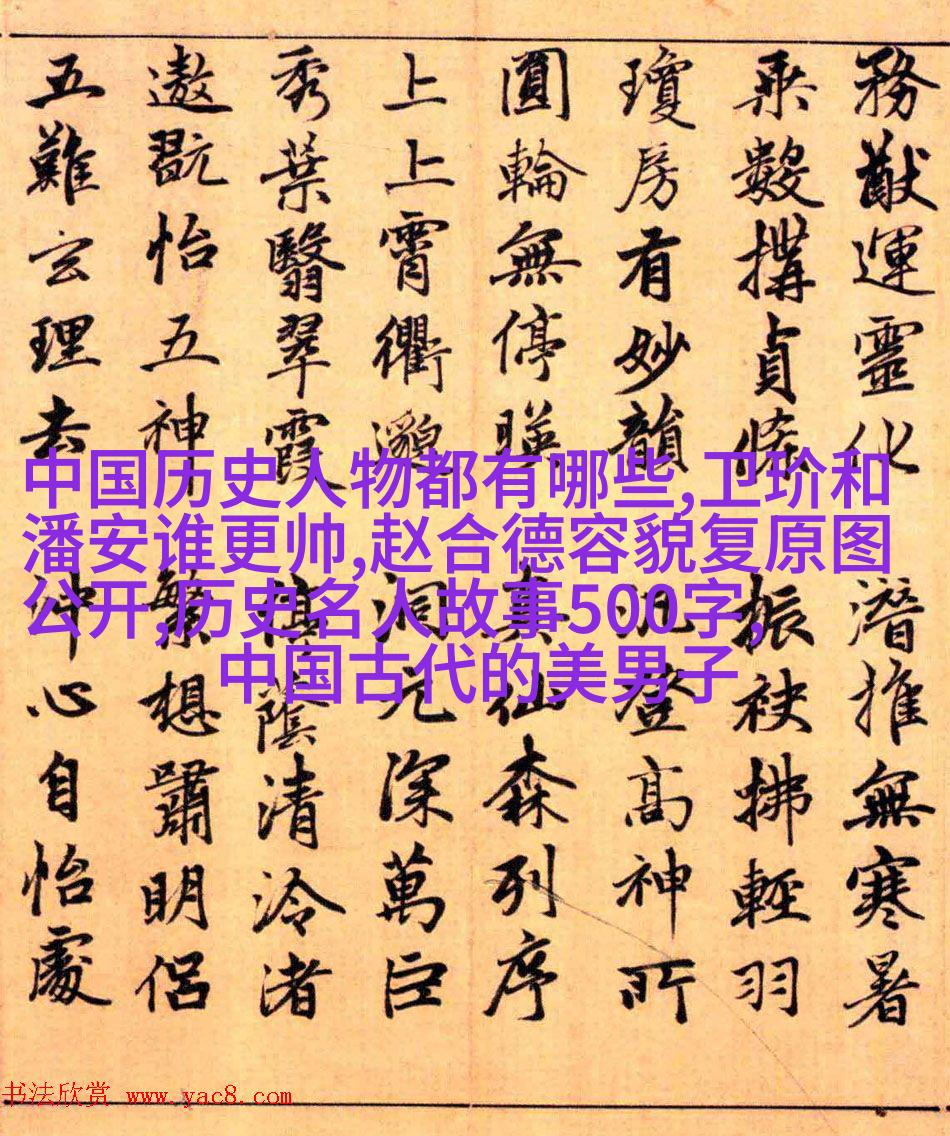 務猷運靈化潛推無寒暑
乗數搆貞條振袂拂輕羽
瓊房有妙韻汎登高神所
圓輪無停暎真仙森列序
上上霄衢邈洞元深萬巨
秀葉翳翠霞陰清泠渚
遨翫怡五神繁想嘯明侶
五難玄理去沖心自怡處
中国历史人物都有哪些,卫玠和
潘安谁更帅,赵合德容貌复原图
公开,历史名人故事500字,
中国古代的美男子
书法欣赏 www.yac8.com